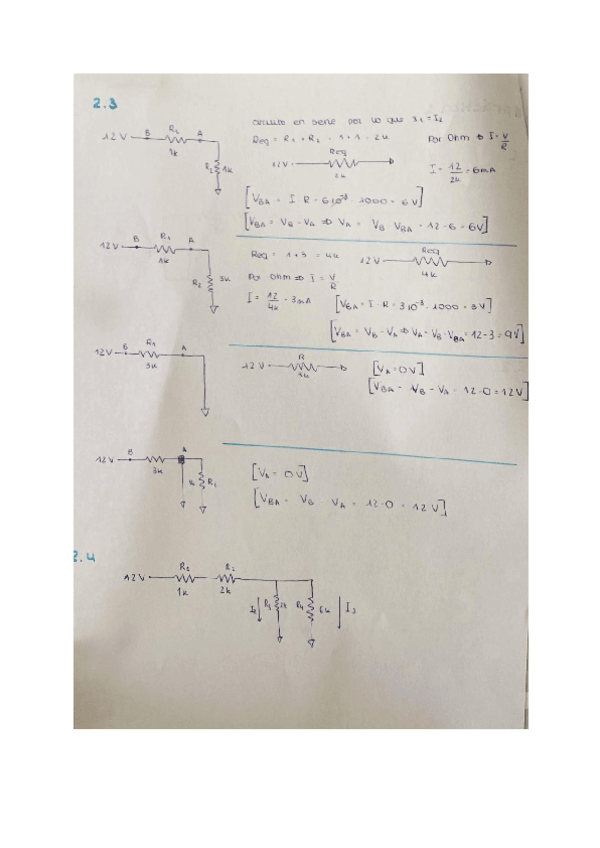 2.3
circuito en serie por lo que I1 = I2
12V B R1 A
1k
R2 1k
Req = R1 + R2 = 1 + 1 = 2k
Por Ohm ⇒ I = V/R
12V Req
2k
I = 12/2k = 6mA
[VBA = I · R = 6·10⁻³ · 1000 = 6V]
[VBA = VB - VA ⇒ VA = VB - VBA = 12 - 6 = 6V]
12V B R1 A
1k
R2 3k
Req = 1 + 3 = 4k
12V Req
4k
Por Ohm ⇒ I = V/R
I = 12/4k = 3mA
[VBA = I · R = 3·10⁻³ · 1000 = 3V]
[VBA = VB - VA ⇒ VA = VB - VBA = 12 - 3 = 9V]
12V B R1 A
3k
12V R
[VA = 0V]
[VBA = VB - VA = 12 - 0 = 12V]
12V B A
3k
[VA = 0V]
[VBA = VB - VA = 12 - 0 = 12V]
2.4
12V R1 R2
1k 2k
R3 R4 6k I3